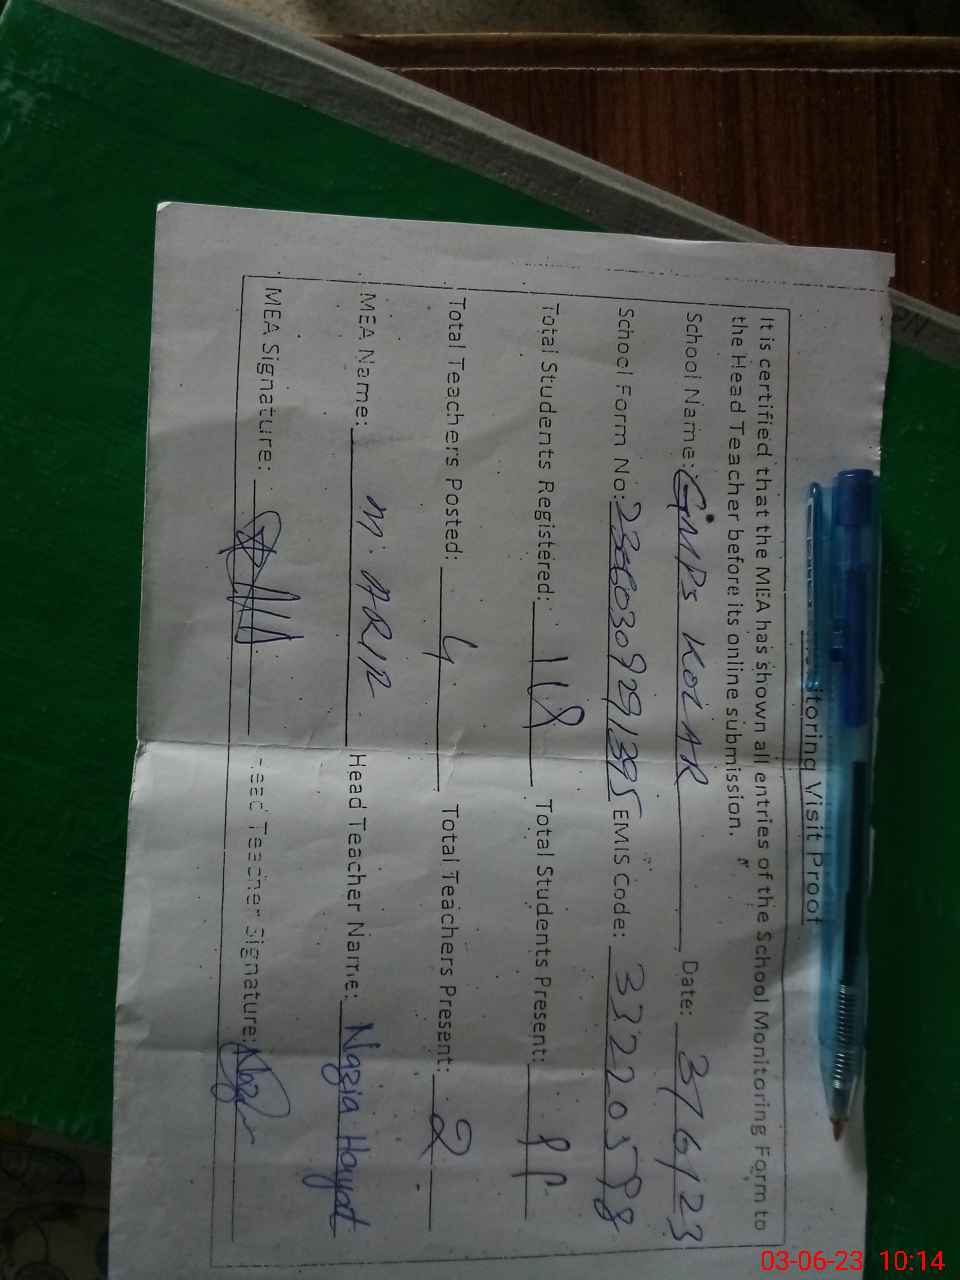 itoring Visit Proof
It is certified that the MEA has shown all entries of the School Monitoring Form to
the Head Teacher before its online submission.
School Name: GMPS KOLAR Date: 3/6/23
School Form No: EMIS Code:
Total Students Registered: Total Students Present:
Total Teachers Posted: 4 Total Teachers Present: 2
MEA Name: Head Teacher Name: Nazia Hayat
MEA Signature: Head Teacher Signature:
03-06-23 10:14